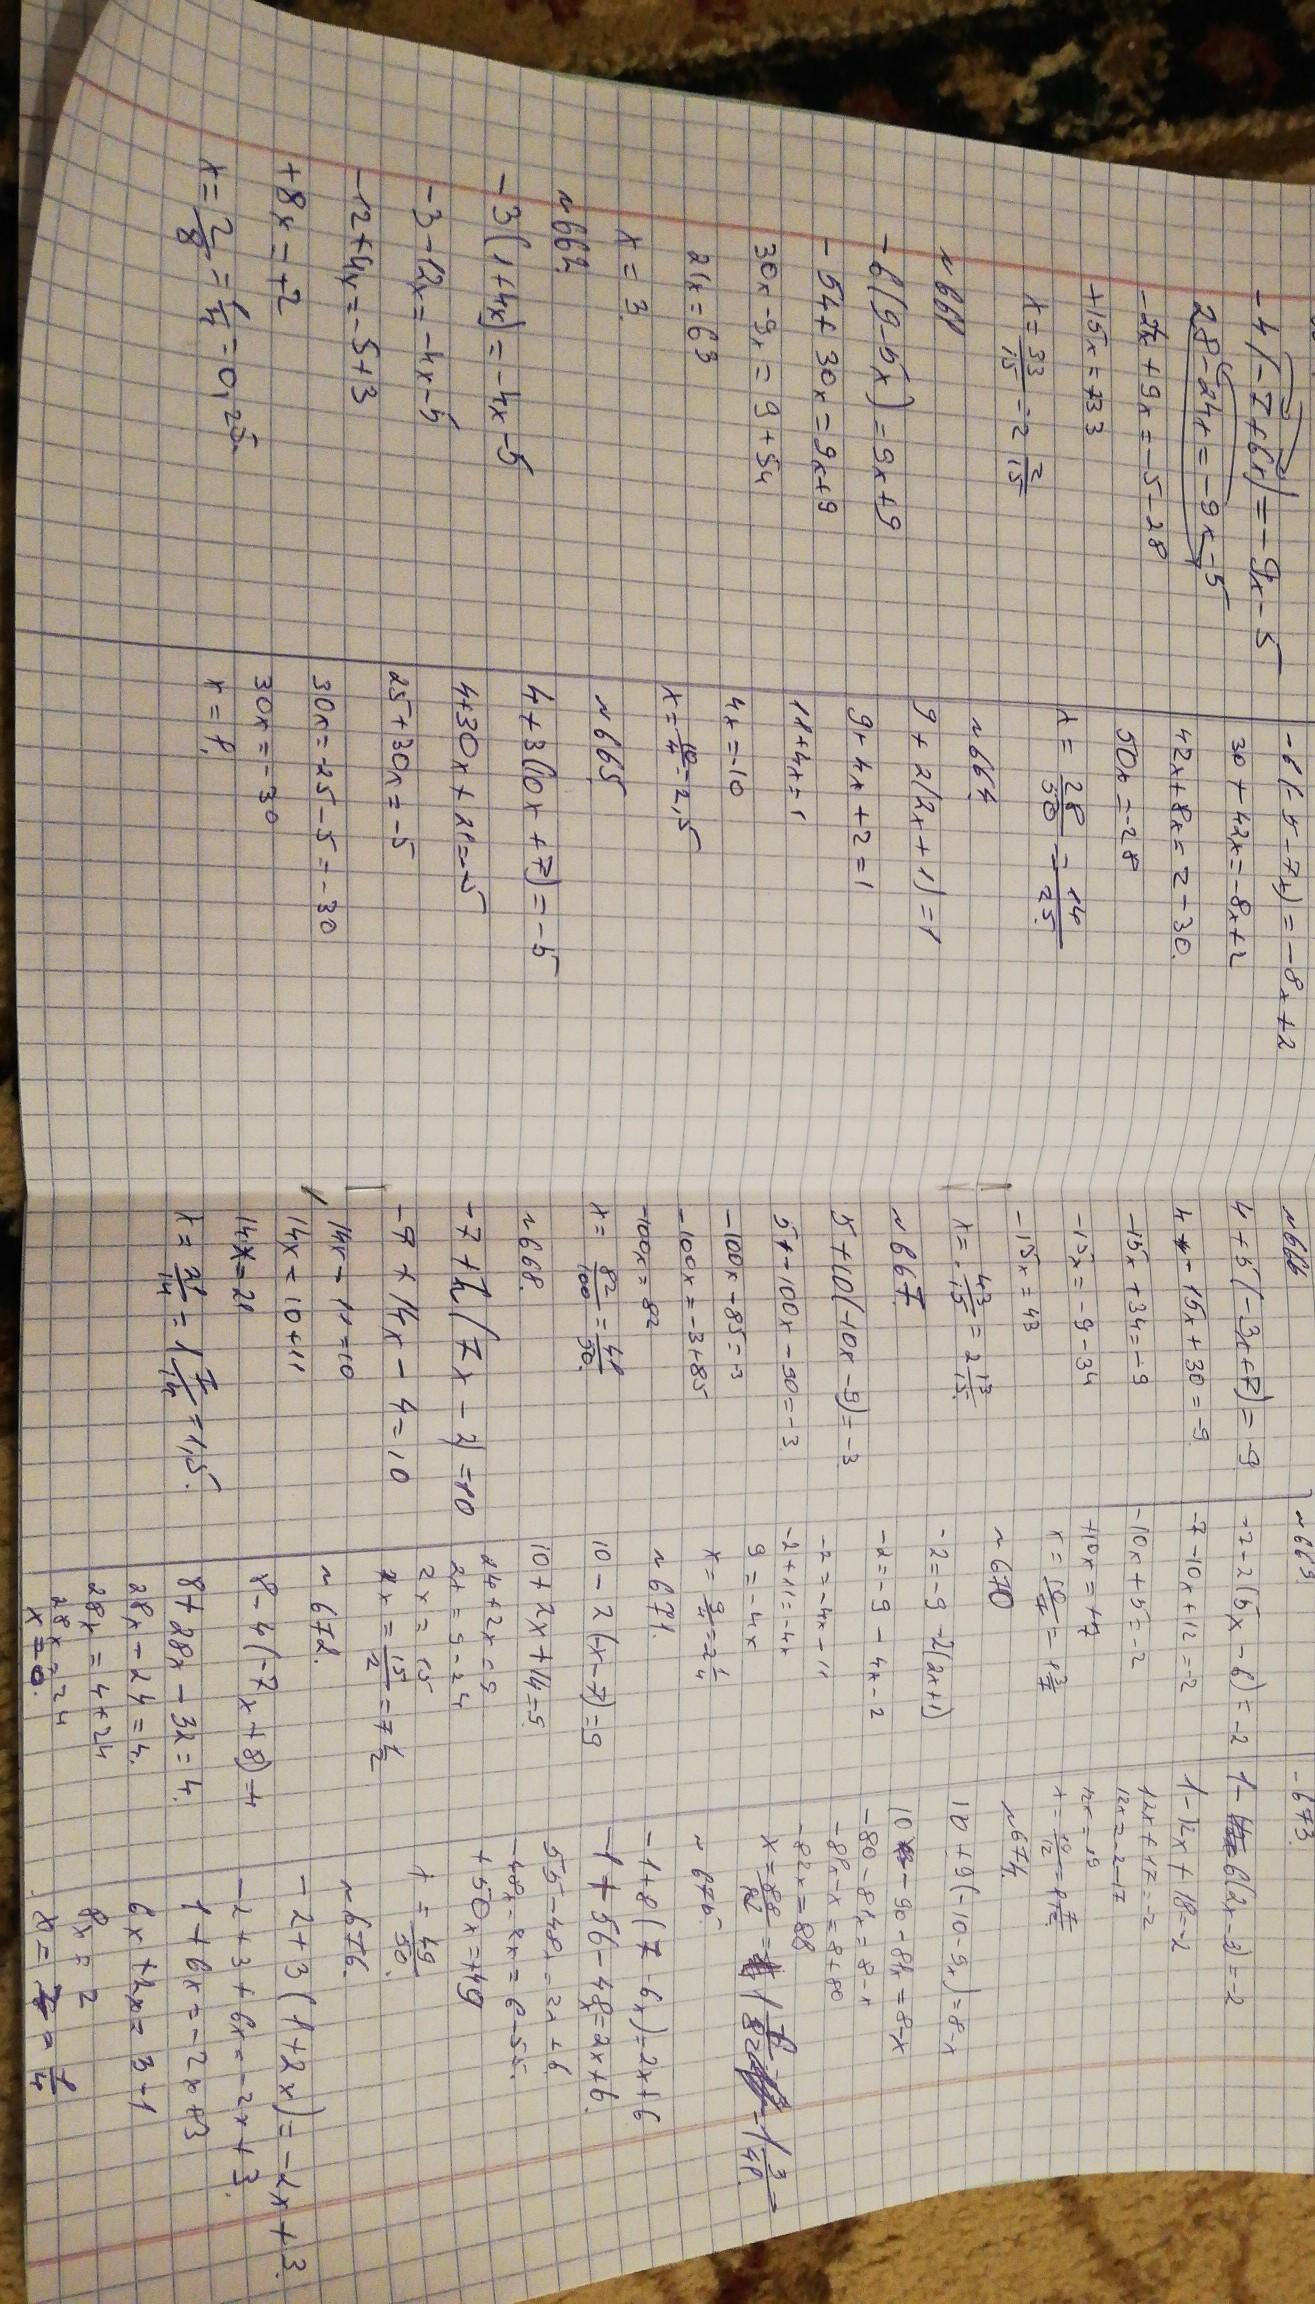 -4(-7+6x)=-9x-5
28-24x=-9x-5
-24x+9x=-5-28
+15x=+33
x=33/15=2 2/15
~661
-6(9-5x)=9x+9
-54+30x=9x+9
30x-9x=9+54
21x=63
x=3.
~662
-3(1+4x)=-4x-5
-3-12x=-4x-5
-12+4x=-5+3
+8x=+2
x=2/8=1/4=0,25.
-6(-5-7x)=-8x+2
30+42x=-8x+2
42x+8x=2-30.
50x=-28
x=28/50=14/25
~664
9+2(2x+1)=1
9+4x+2=1
11+4x=1
4x=-10
x=10/4=2,5
~665
4+3(10x+7)=-5
4+30x+21=-5
25+30x=-5
30x=-25-5=-30
30x=-30
x=1.
~666
4+5(-3x+7)=-9
4-15x+30=-9.
-15x+34=-9
-15x=-9-34
-15x=43
x=-43/15=2 13/15.
~667.
5+10(-10x-9)=-3
5+-100x-90=-3.
-100x+85=-3
-100x=-3+85
-100x=82
x=82/100=41/50.
~668.
-7+2(7x-2)=10
-7+14x-4=10
14x-11=10
14x=10+11
14x=21
x=21/14=1 7/14=1,5.
~669
-7-2(5x-6)=-2
-7-10x+12=-2
-10x+5=-2
+10x=+7
x=10/7=1 3/7
~670
-2=-9-2(2x+1)
-2=-9-4x-2
-2=-4x-11
-2+11=-4x
9=-4x
x=9/4=-2 1/4
~671.
10-2(-x-7)=9
10+2x+14=9.
24+2x=9
2x=9-24
2x=15
2x=15/2=7 1/2
~672.
8-4(-7x+8)=4
8+28x-32=4.
28x-24=4.
28x=4+24
28x=24
x=0.
-673.
1-6(2x-3)=-2
1-12x+18=-2
12x+17=-2
12x=-2-17
12x=19
x=19/12=1 7/12
~674.
10+9(-10-9x)=8-x
10-90-81x=8-x
-80-81x=8-x
-81x-x=8+80
-82x=88
~675.
-1+8(7-6x)=2x+6
-1+56-48x=2x+6.
55-48x=2x+6
-48x-2x=6-55.
+50x=+49
x=49/50.
~676.
-2+3(1+2x)=-2x+3.
-2+3+6x=-2x+3.
1+6x=-2x+3
6x+2x=3-1
8x=2